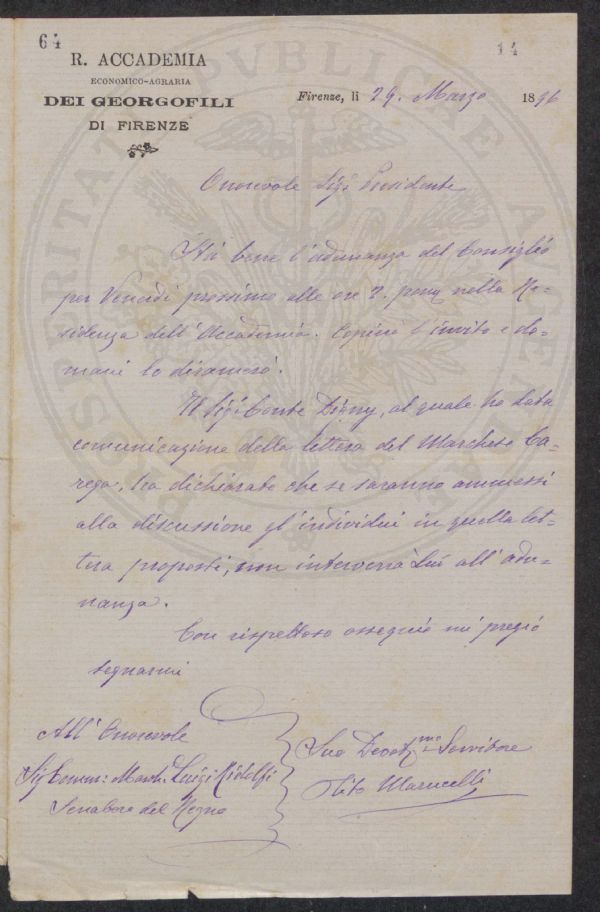 64
14
R. ACCADEMIA
ECONOMICO-AGRARIA
DEI GEORGOFILI
DI FIRENZE
Firenze, li 29. Marzo 1896
PROSPERITATI PVBLICAE AVGENDAE
Onorevole Sig: Presidente
Sta bene l'adunanza del Consiglio
per Venerdì prossimo alle ore 2. pom nella Re-
sidenza dell'Accademia. Copierò l'invito e do-
mani lo diramerò.
Il Sig: Conte Digny, al quale ho data
comunicazione della lettera del Marchese Ca-
rega, ha dichiarato che se saranno ammessi
alla discussione gl'individui in quella let-
tera proposti, non interverrà Lui all'adu-
nanza.
Con rispettoso ossequio mi pregio
segnarmi
All'Onorevole
Sig Comm: March: Luigi Ridolfi
Senatore del Regno
Suo Devot mo Servitore
Tito Marucelli